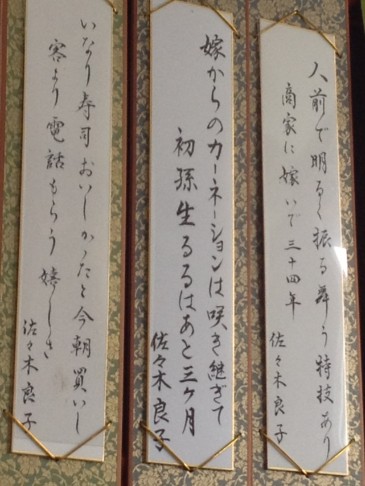 人前で明るく振る舞う特技あり
商家に嫁いで三十四年
佐々木良子
嫁からのカーネーションは咲き継ぎて
初孫生るるはあと三ヶ月
佐々木良子
いなり寿司おいしかったと今朝買いし
客より電話もらう嬉しさ
佐々木良子